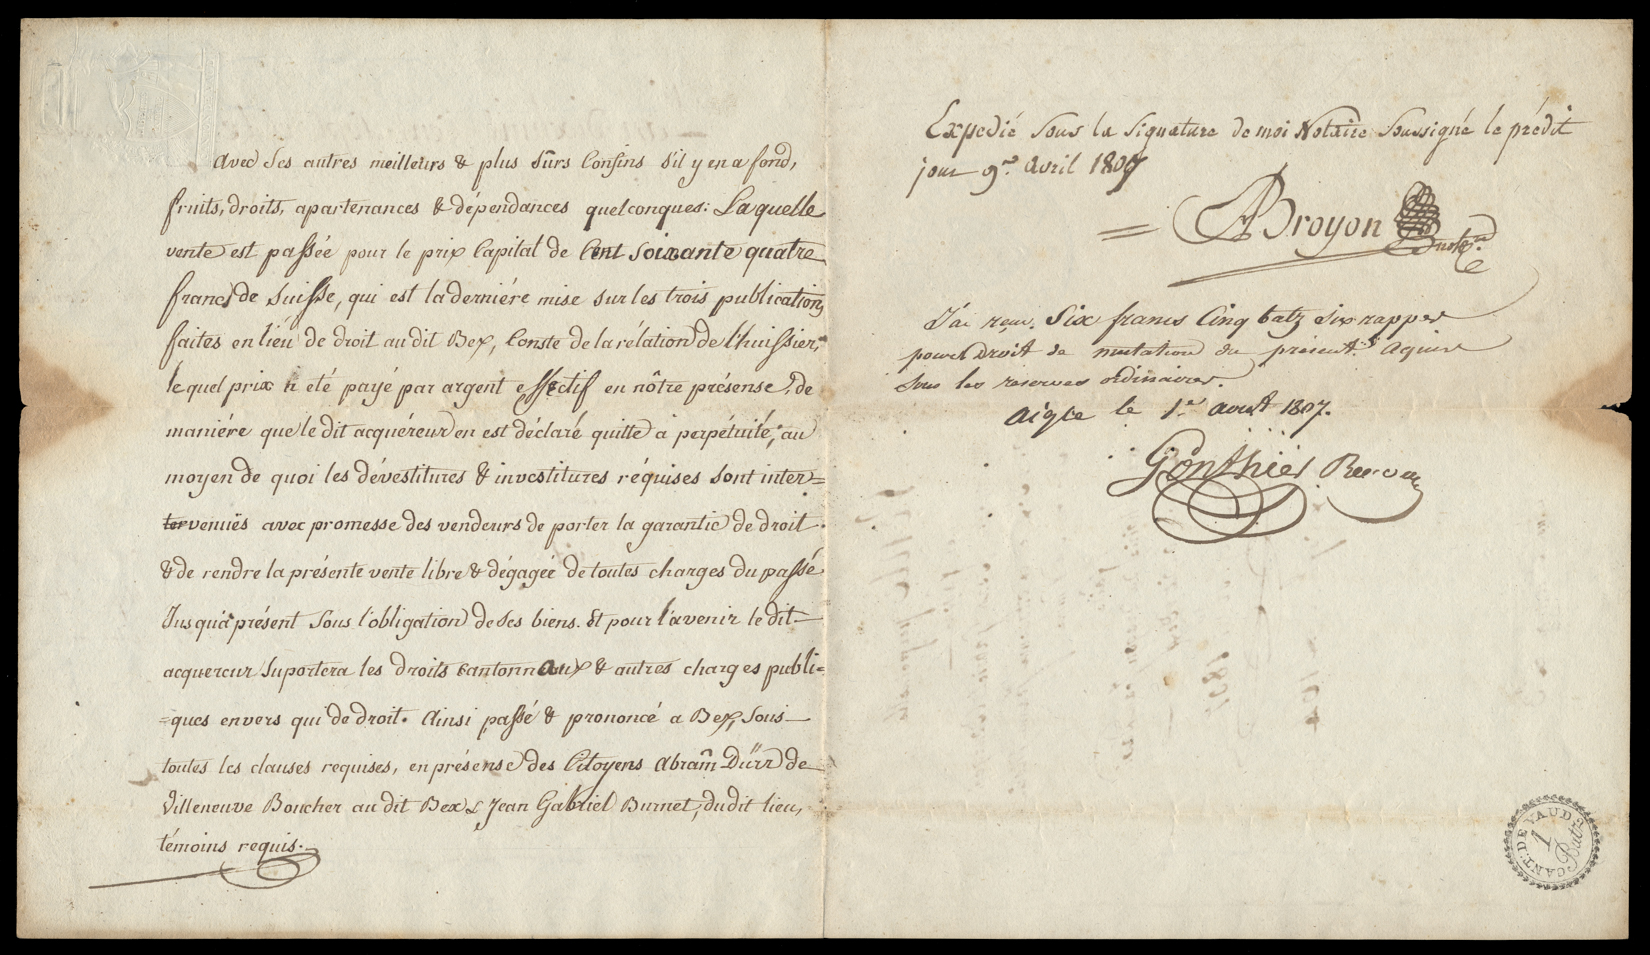 avec ses autres meilleurs & plus sûrs Confins s'il y en a fond,
fruits, droits, apartenances & dépendances quelconques: La quelle
vente est passée pour le prix Capital de Cent soixante quatre
francs de Suisse, qui est la derniére mise sur les trois publications
faites en lieu de droit au dit Bex, Conste de la rélation de l'huissier,
le quel prix a été payé par argent effectif en nôtre présense, de
maniére que le dit acquéreur en est déclaré quitte a perpétuité, au
moyen de quoi les dévestitures & investitures réquises sont inter=
ter venues avec promesse des vendeurs de porter la garantie de droit
& de rendre la présente vente libre & dégagée de toutes charges du passé
Jusqu'à présent sous l'obligation de ses biens. Et pour l'avenir le dit
acquereur suportera les droits cantonnaux & autres charges publi=
=ques envers qui de droit. Ainsi passé & prononcé a Bex, sous
toutes les clauses requises, en présense des Citoyens Abram Dürr de
Villeneuve Boucher au dit Bex & Jean Gabriel Burnet, du dit lieu,
témoins requis.
Expedié sous la signature de moi Notaire soussigné le prédit
jour 9.e avril 1807
= ABroyon not.re
J'ai reçu six francs Cinq batz six rappes
pour droit de mutation du présent acquis
sous les reserves ordinaires.
Aigle le 1.er aoust 1807.
Gonthier Receveur
CANT. DE VAUD
1
Batz